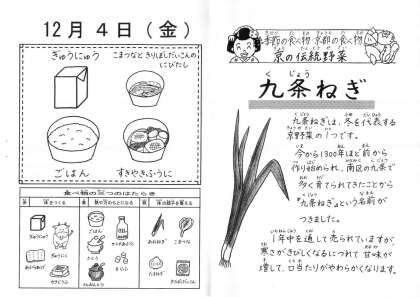 12月4日(金)
ぎゅうにゅう
こまつなときりぼしだいこんの
にびたし
ごはん
すきやきふうに
食べ物の三つのはたらき
体をつくる
体の調子を整える
ぎゅうにゅう
ごはん
こまつな
季節の食べ物・京都の食べ物
京の伝統野菜
くじょう
九条ねぎ
九条ねぎは、冬を代表する
京野菜の1つです。
今から1300年ほど前から
作り始められ、南区の九条で
多く育てられてきたことから
「九条ねぎ」という名前が
つきました。
1年中を通して売られていますが、
寒さがきびしくなるにつれて甘味が
増して、口当たりがやわらかくなります。